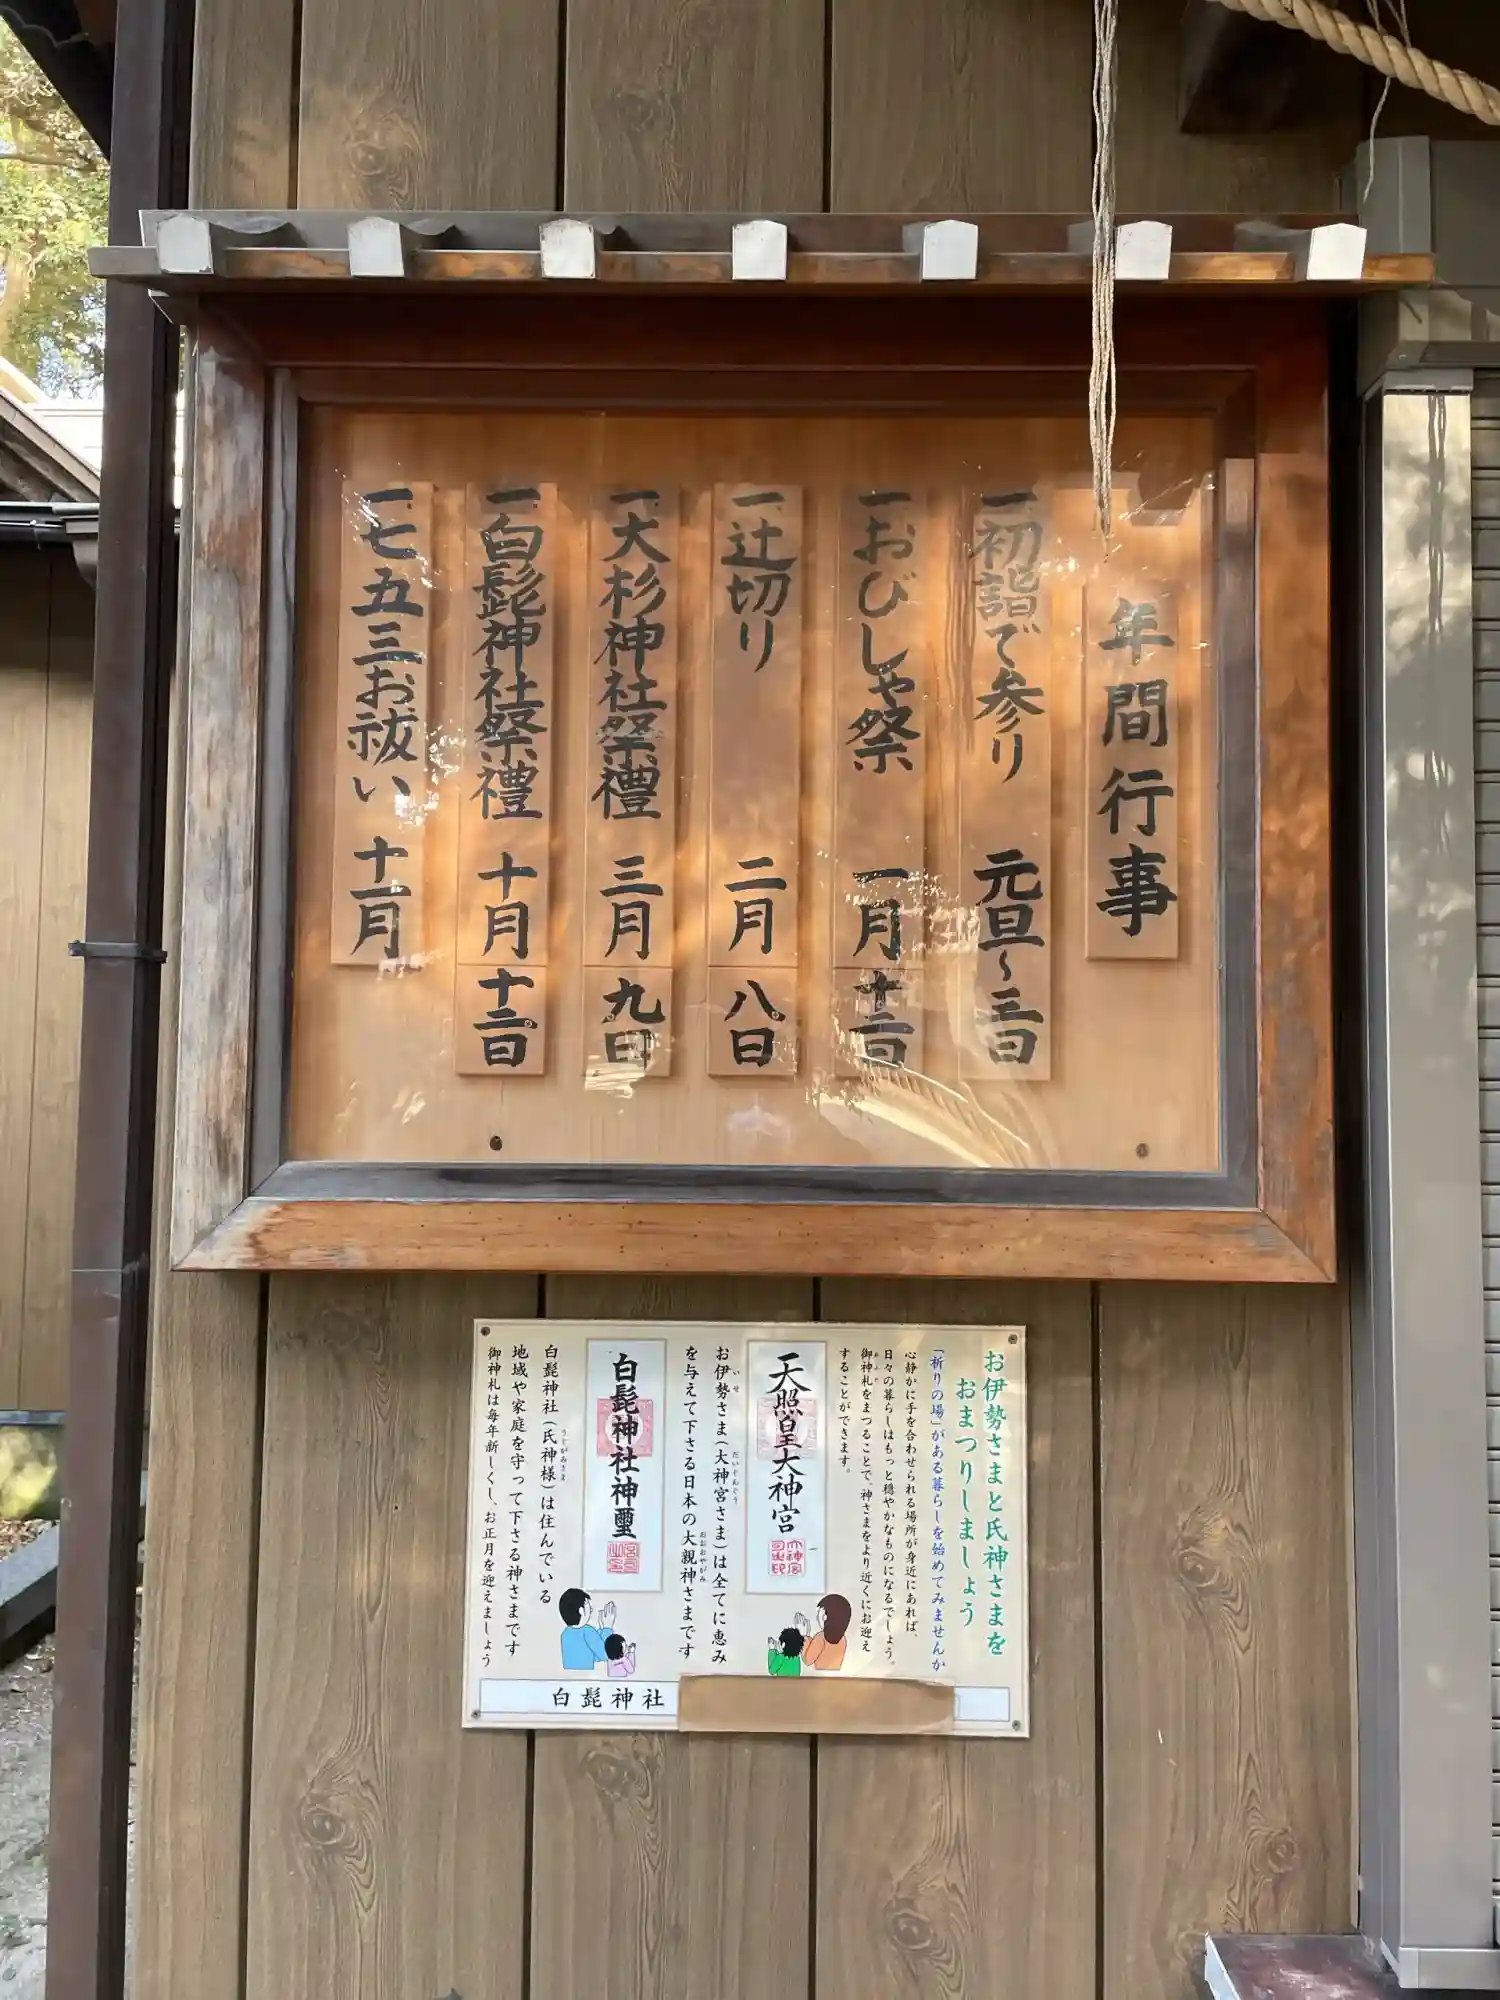 年間行事
一初詣で参り 元旦～三日
一おびしゃ祭 一月十二日
一辻切り 二月八日
一大杉神社祭禮 三月九日
一白髭神社祭禮 十月十二日
一七五三お祓い 十一月
お伊勢さまと氏神さまを
おまつりしましょう
「祈りの場」がある暮らしを始めてみませんか
心静かに手を合わせられる場所が身近にあれば、
日々の暮らしはもっと穏やかなものになるでしょう。
御神札をまつることで、神さまをより近くにお迎え
することができます。
天照皇大神宮
お伊勢さま(大神宮さま)は全てに恵み
を与えて下さる日本の大親神さまです
白髭神社神璽
白髭神社(氏神様)は住んでいる
地域や家庭を守って下さる神さまです
御神札は毎年新しくし、お正月を迎えましょう
白髭神社